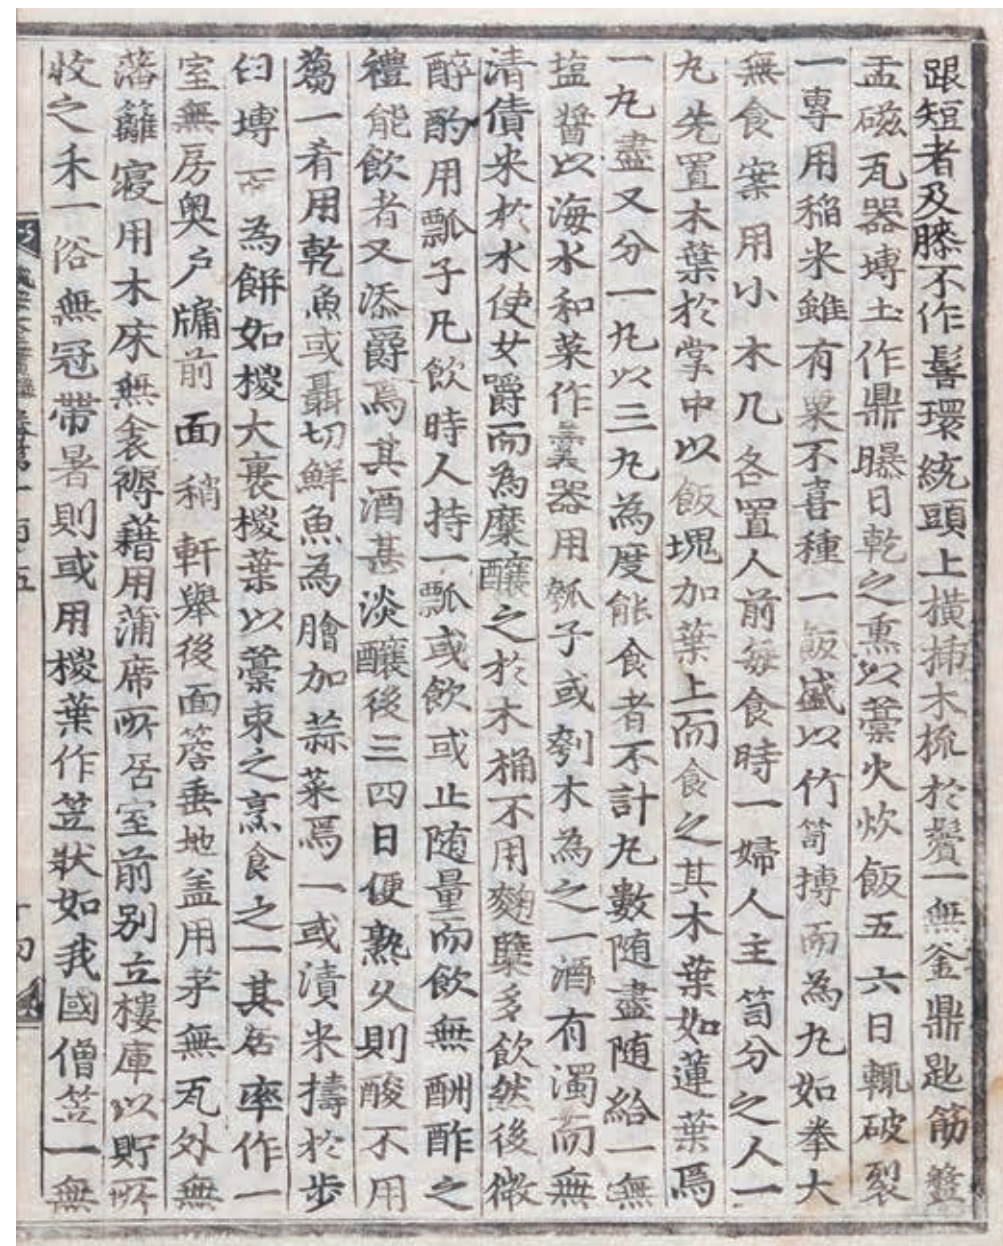 跟短者及膝不作髻環統頭上橫揷木梳於鬢一無釜鼎匙筯盤
盂磁瓦器塼土作鼎曝日乾之熏以藁火炊飯五六日輒破裂
一專用稻米雖有粟不喜種一飯盛以竹笥摶而爲丸如拳大
無食案用小木几各置人前每食時一婦人主笥分之人一
丸先置木葉於掌中以飯塊加葉上而食之其木葉如蓮葉焉
一丸盡又分一丸以三丸爲度能食者不計丸數随盡随給一無
塩醬以海水和菜作羹器用瓠子或刳木爲之一酒有濁而無
清漬米於水使女嚼而爲糜釀之於木桶不用麴糵多飲然後微
醉酌用瓢子凡飲時人持一瓢或飲或止随量而飲無酬酢之
禮能飲者又添爵焉其酒甚淡釀後三四日便熟久則酸不用
蒭一肴用乾魚或聶切鮮魚爲膾加蒜菜焉一或漬米擣於步
臼塼而爲餠如椶大裹椶葉以藁束之烹食之一其居率作一
室無房奧戶牖前面稍軒舉後面簷垂地盖用茅無瓦外無
藩籬寢用木床無衾褥藉用蒲席所居室前別立樓庫以貯所
收之禾一俗無冠帶暑則或用椶葉作笠狀如我國僧笠一無